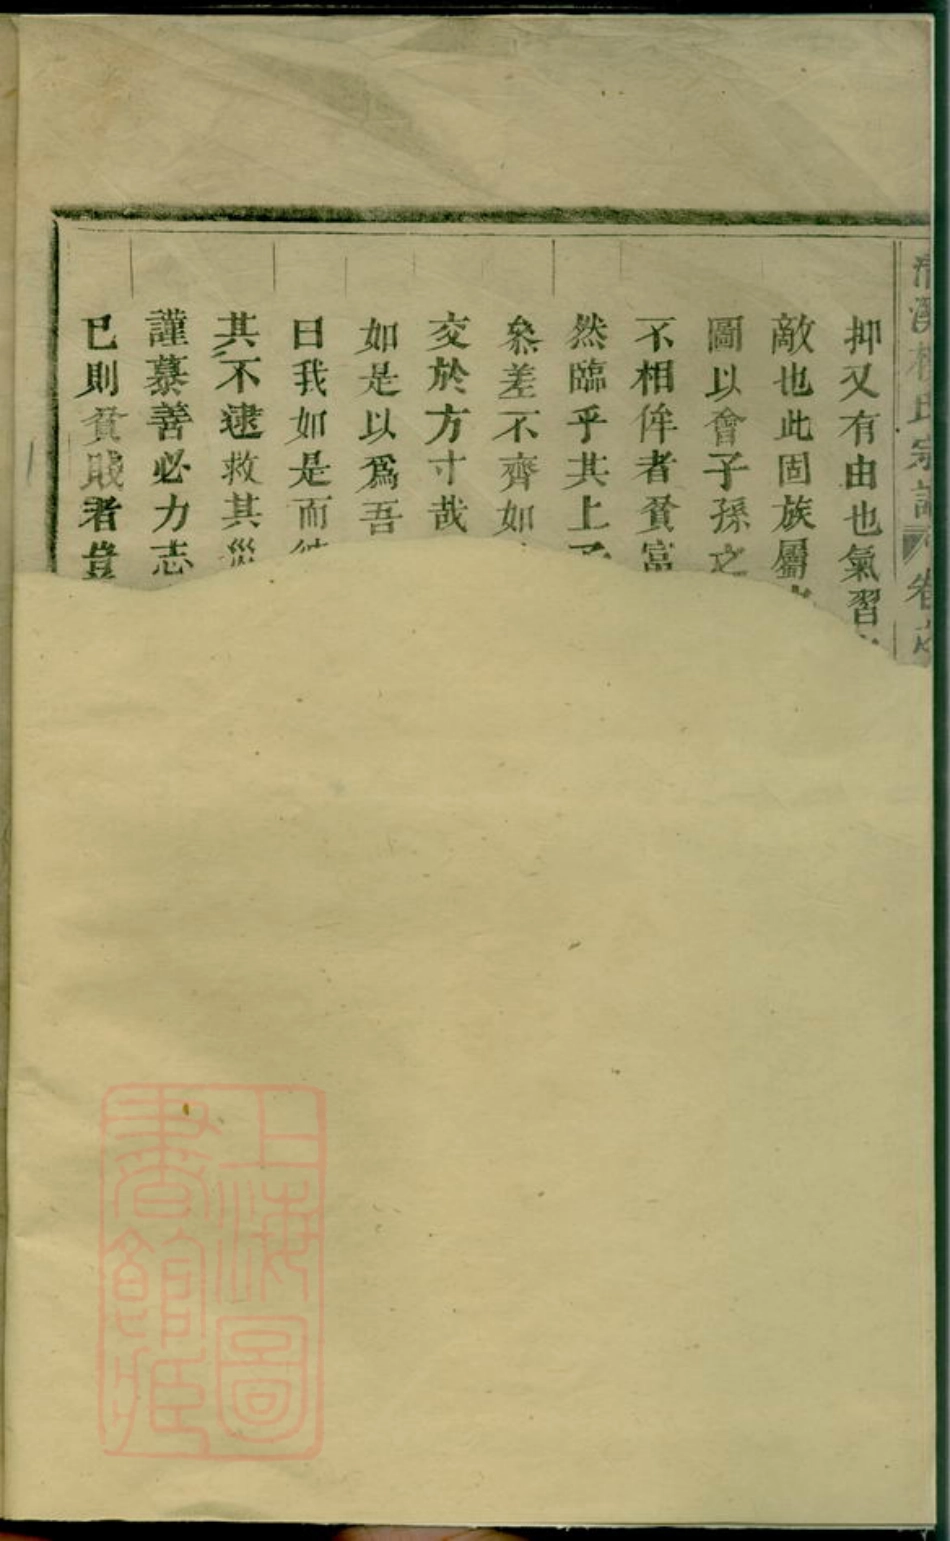 氏宗譜 卷之
抑又有由也氣習
敵也此固族屬
圖以會子孫之
不相侔者貧富
然臨乎其上
叅差不齊如
交於方寸哉
如是以爲吾
曰我如是而
其不逮救其災
謹慕善必力志
已則貧賤者豈
上海圖書館藏